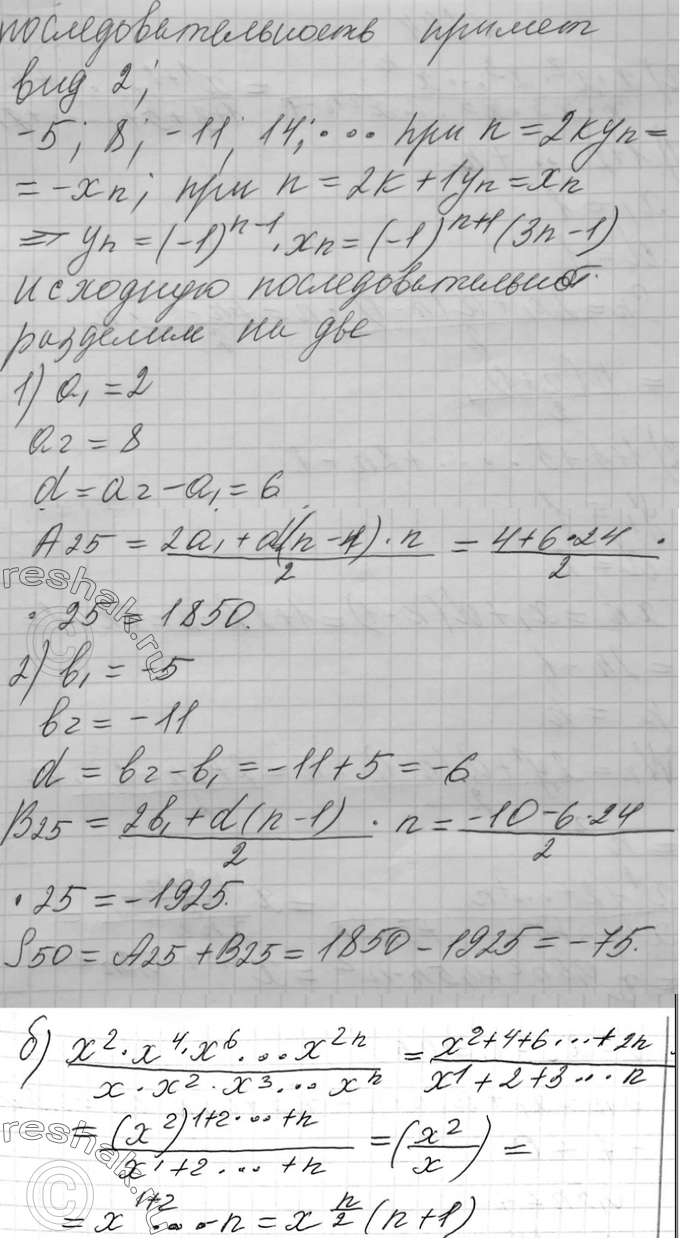 последовательность примет
вид 2;
-5; 8; -11; 14; ... при n = 2k yn =
= -xn; при n = 2k + 1 yn = xn
⇒ yn = (-1)^{n-1} · xn = (-1)^{n+1} (3n - 1)
исходную последовательност.
разделим на две
1) a₁ = 2
a₂ = 8
d = a₂ - a₁ = 6
A25 = \frac{2a₁ + d(n-1) · n}{2} = \frac{4 + 6 · 24}{2} ·
· 25 = 1850.
2) b₁ = -5
b₂ = -11
d = b₂ - b₁ = -11 + 5 = -6
B25 = \frac{2b₁ + d(n-1)}{2} · n = \frac{-10 - 6 · 24}{2}
· 25 = -1925.
S50 = A25 + B25 = 1850 - 1925 = -75.
б) \frac{x² · x⁴ · x⁶ · ... x^{2n}}{x · x² · x³ ... x^n} = \frac{x^{2+4+6...+2n}}{x^{1+2+3...n}}
= \frac{(x²)^{1+2...+n}}{x^{1+2...+n}} = (\frac{x²}{x}) =
= x^{1+2}...n = x^{\frac{n}{2}} (n+1)
reshak.ru
reshak.ru